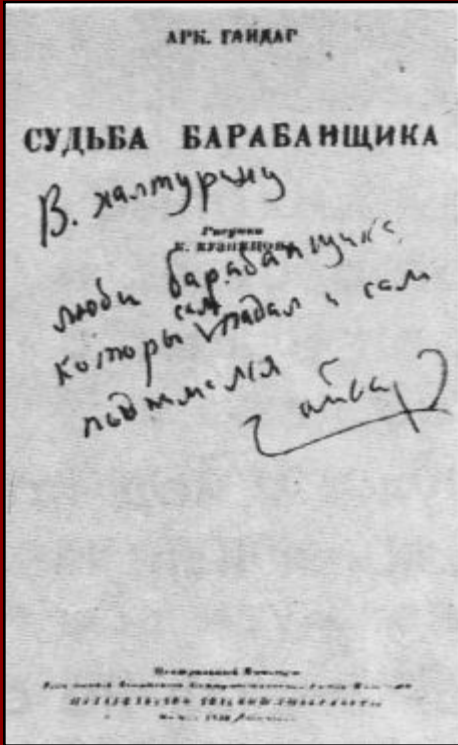 АРК. ГАЙДАР
СУДЬБА БАРАБАНЩИКА
В. Халтурину
Рисунки
К. КУЗНЕЦОВА
люби барабанщика
сам
которы падал и сам
поднимался
Гайдар